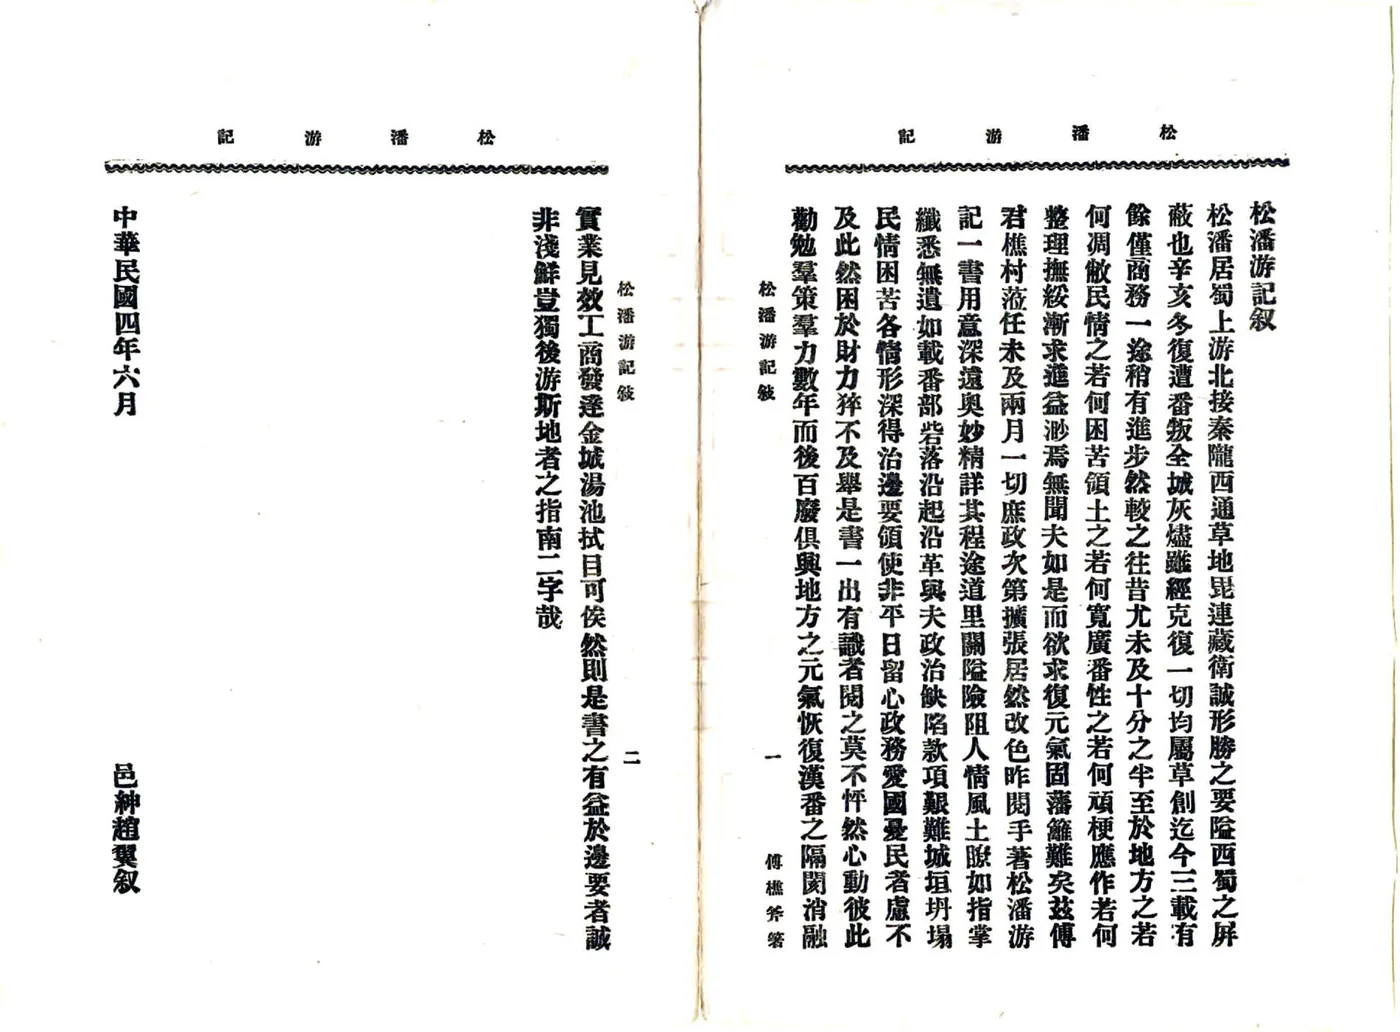 松潘游記
松潘游記叙
松潘居蜀上游北接秦隴西通草地毘連藏衛誠形勝之要隘西蜀之屏
蔽也辛亥冬復遭番叛全城灰燼雖經克復一切均屬草創迄今三載有
餘僅商務一途稍有進步然較之往昔尤未及十分之半至於地方之若
何凋敝民情之若何困苦領土之若何寬廣番性之若何頑梗應作若何
整理撫綏漸求進益渺焉無聞夫如是而欲求復元氣固藩籬難矣茲傅
君樵村蒞任未及兩月一切庶政次第擴張居然改色昨閱手著松潘游
記一書用意深遠奥妙精詳其程途道里關隘險阻人情風土瞭如指掌
纖悉無遺如載番部砦落沿起沿革與夫政治缺陷款項艱難城垣坍塌
民情困苦各情形深得治邊要領使非平日留心政務愛國憂民者慮不
及此然困於財力猝不及舉是書一出有識者閱之莫不怦然心動彼此
勸勉羣策羣力數年而後百廢俱興地方之元氣恢復漢番之隔閡消融
松潘游記敍 一 傅樵斧箸
松潘游記
松潘游記敍 二
實業見效工商發達金城湯池拭目可俟然則是書之有益於邊要者誠
非淺鮮豈獨後游斯地者之指南二字哉
中華民國四年六月 邑紳趙翼叙